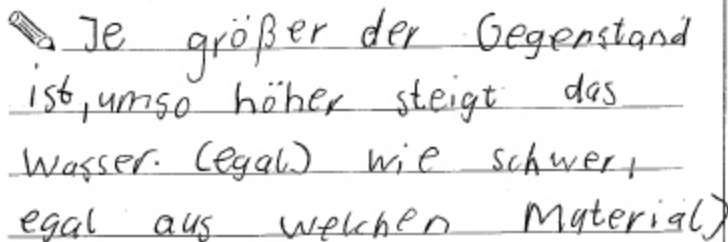 Je größer der Gegenstand
ist, umso höher steigt das
Wasser. (egal) wie schwer,
egal aus welchen Material)